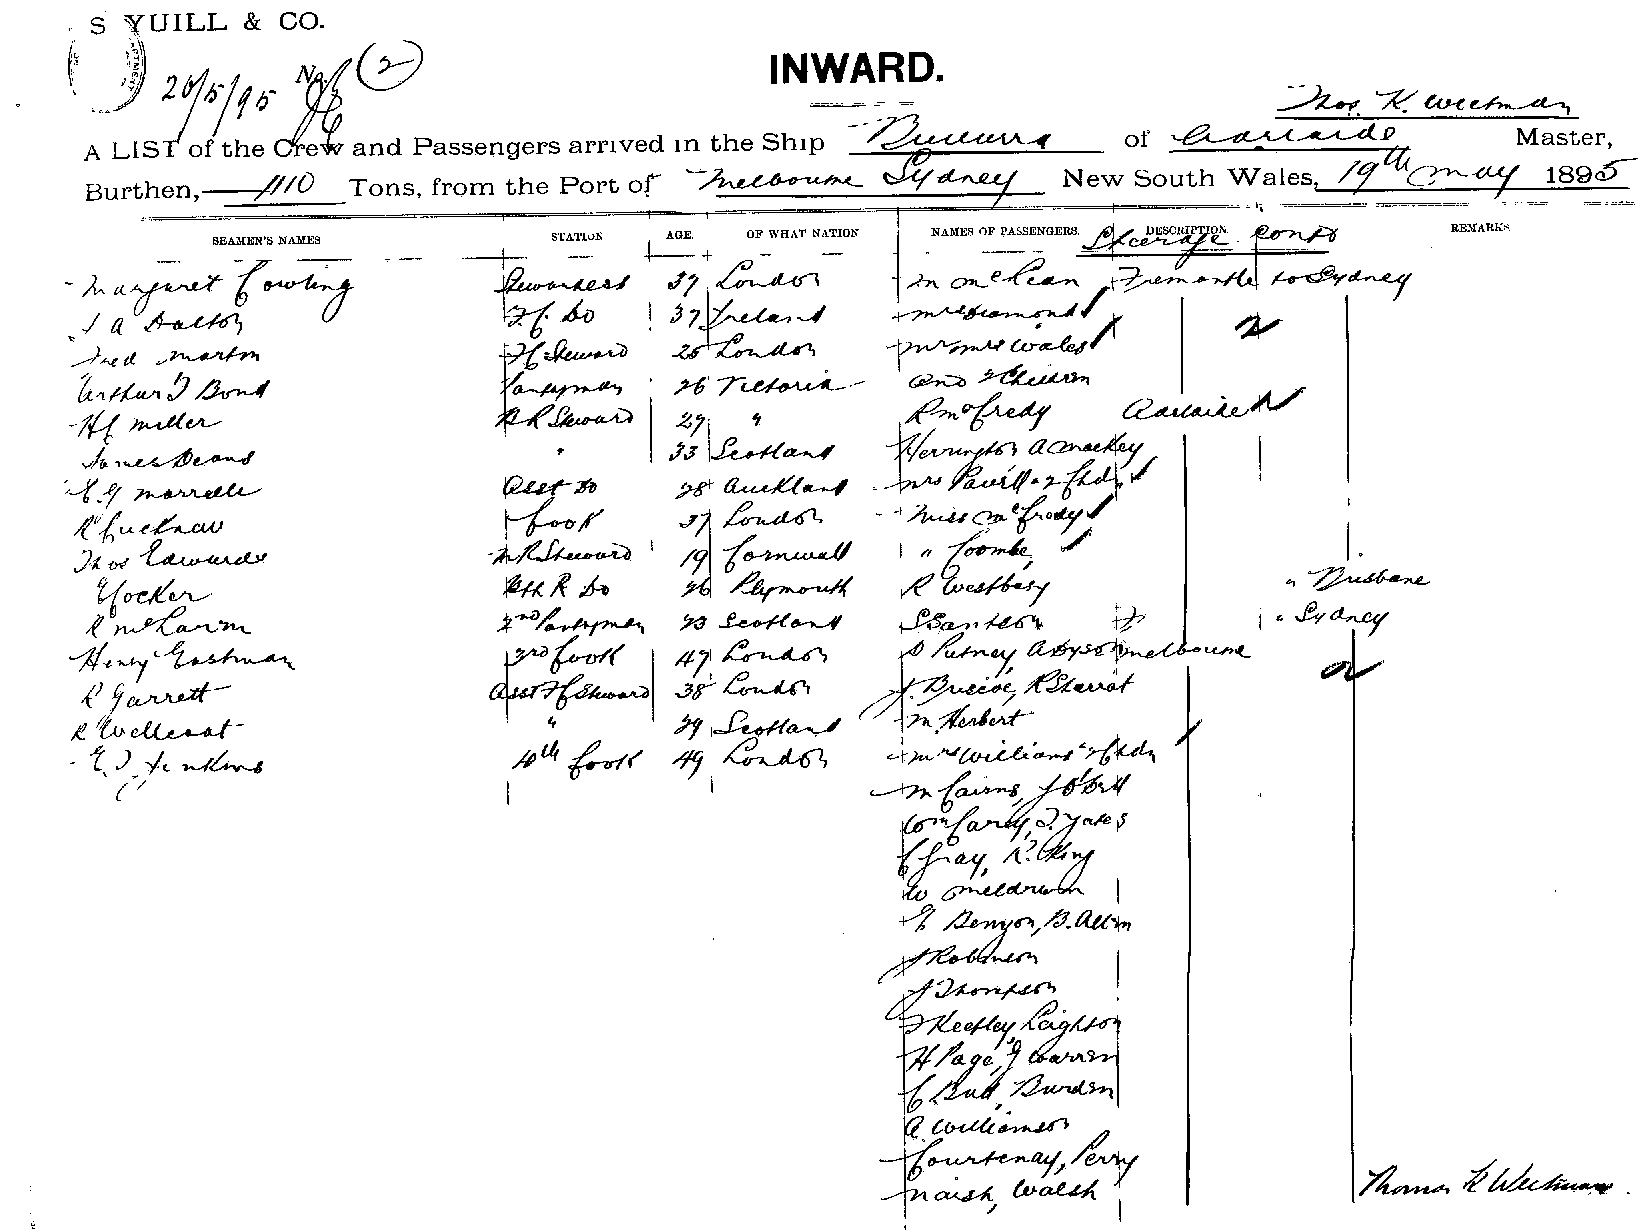 S YUILL & CO.
20/5/95 No (2)
INWARD.
Thos. K. Weetman
A LIST of the Crew and Passengers arrived in the Ship of Adelaide Master,
Burthen, Tons, from the Port of Melbourne Sydney New South Wales, 19th May 1895
SEAMEN'S NAMES STATION AGE. OF WHAT NATION NAMES OF PASSENGERS. DESCRIPTION. REMARKS
Steerage Contd
Margaret Cowling Stewardess 37 London M McLean Fremantle to Sydney
J A Dalton F.C. Do 37 Ireland Mrs Diamond 2
Fred Martin F C Steward 25 London Mr Mrs Wales
Arthur J Bond Pantryman 26 Victoria and 2 Children
H C Miller B R Steward 27 " R McCredy Adelaide
James Deans " 33 Scotland Herrington A Mackey
E. G Morrelle Asst Do 28 Auckland Mrs 2 Chdn
R Lucknow Cook 37 London Miss McCredy
Thos Edwards M R Steward 19 Cornwall " Coombe
E Cocker Bth R Do 26 Plymouth R Westbury " Brisbane
R McLaren 2nd Pantryman 23 Scotland S Santeon " Sydney
Henry Eastman 3rd Cook 47 London S Putney, A Dyson Melbourne
R Garrett Asst F C Steward 38 London J. Briscoe, R Starrat 2
R Wellcoat " 29 Scotland M Herbert
E. J. Jenkins 4th Cook 49 London Mrs Williams & 2 Chdn
M Cairns, J Odell
Wm Carey, J. Yates
C Gray, R. King
W Meldrum
E Benyon, B. Allen
J Robinson
J Thompson
F Keetley, Leighton
H Page, J Warren
C Bull, Burden
A Williamson
Courtenay, Perry
Naish, Walsh
Thomas K Weetman